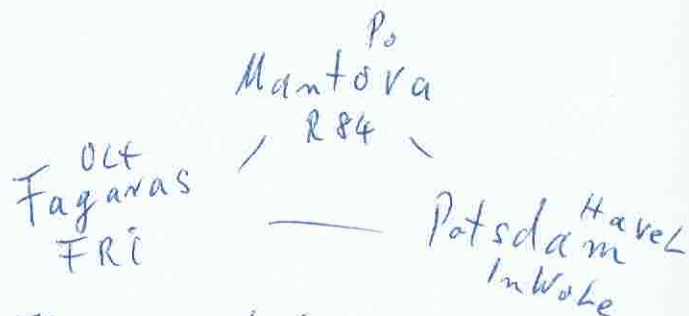 Po
Mantova
R84
Olt
Fagaras
FRI
Potsdam Havel
InWoLe